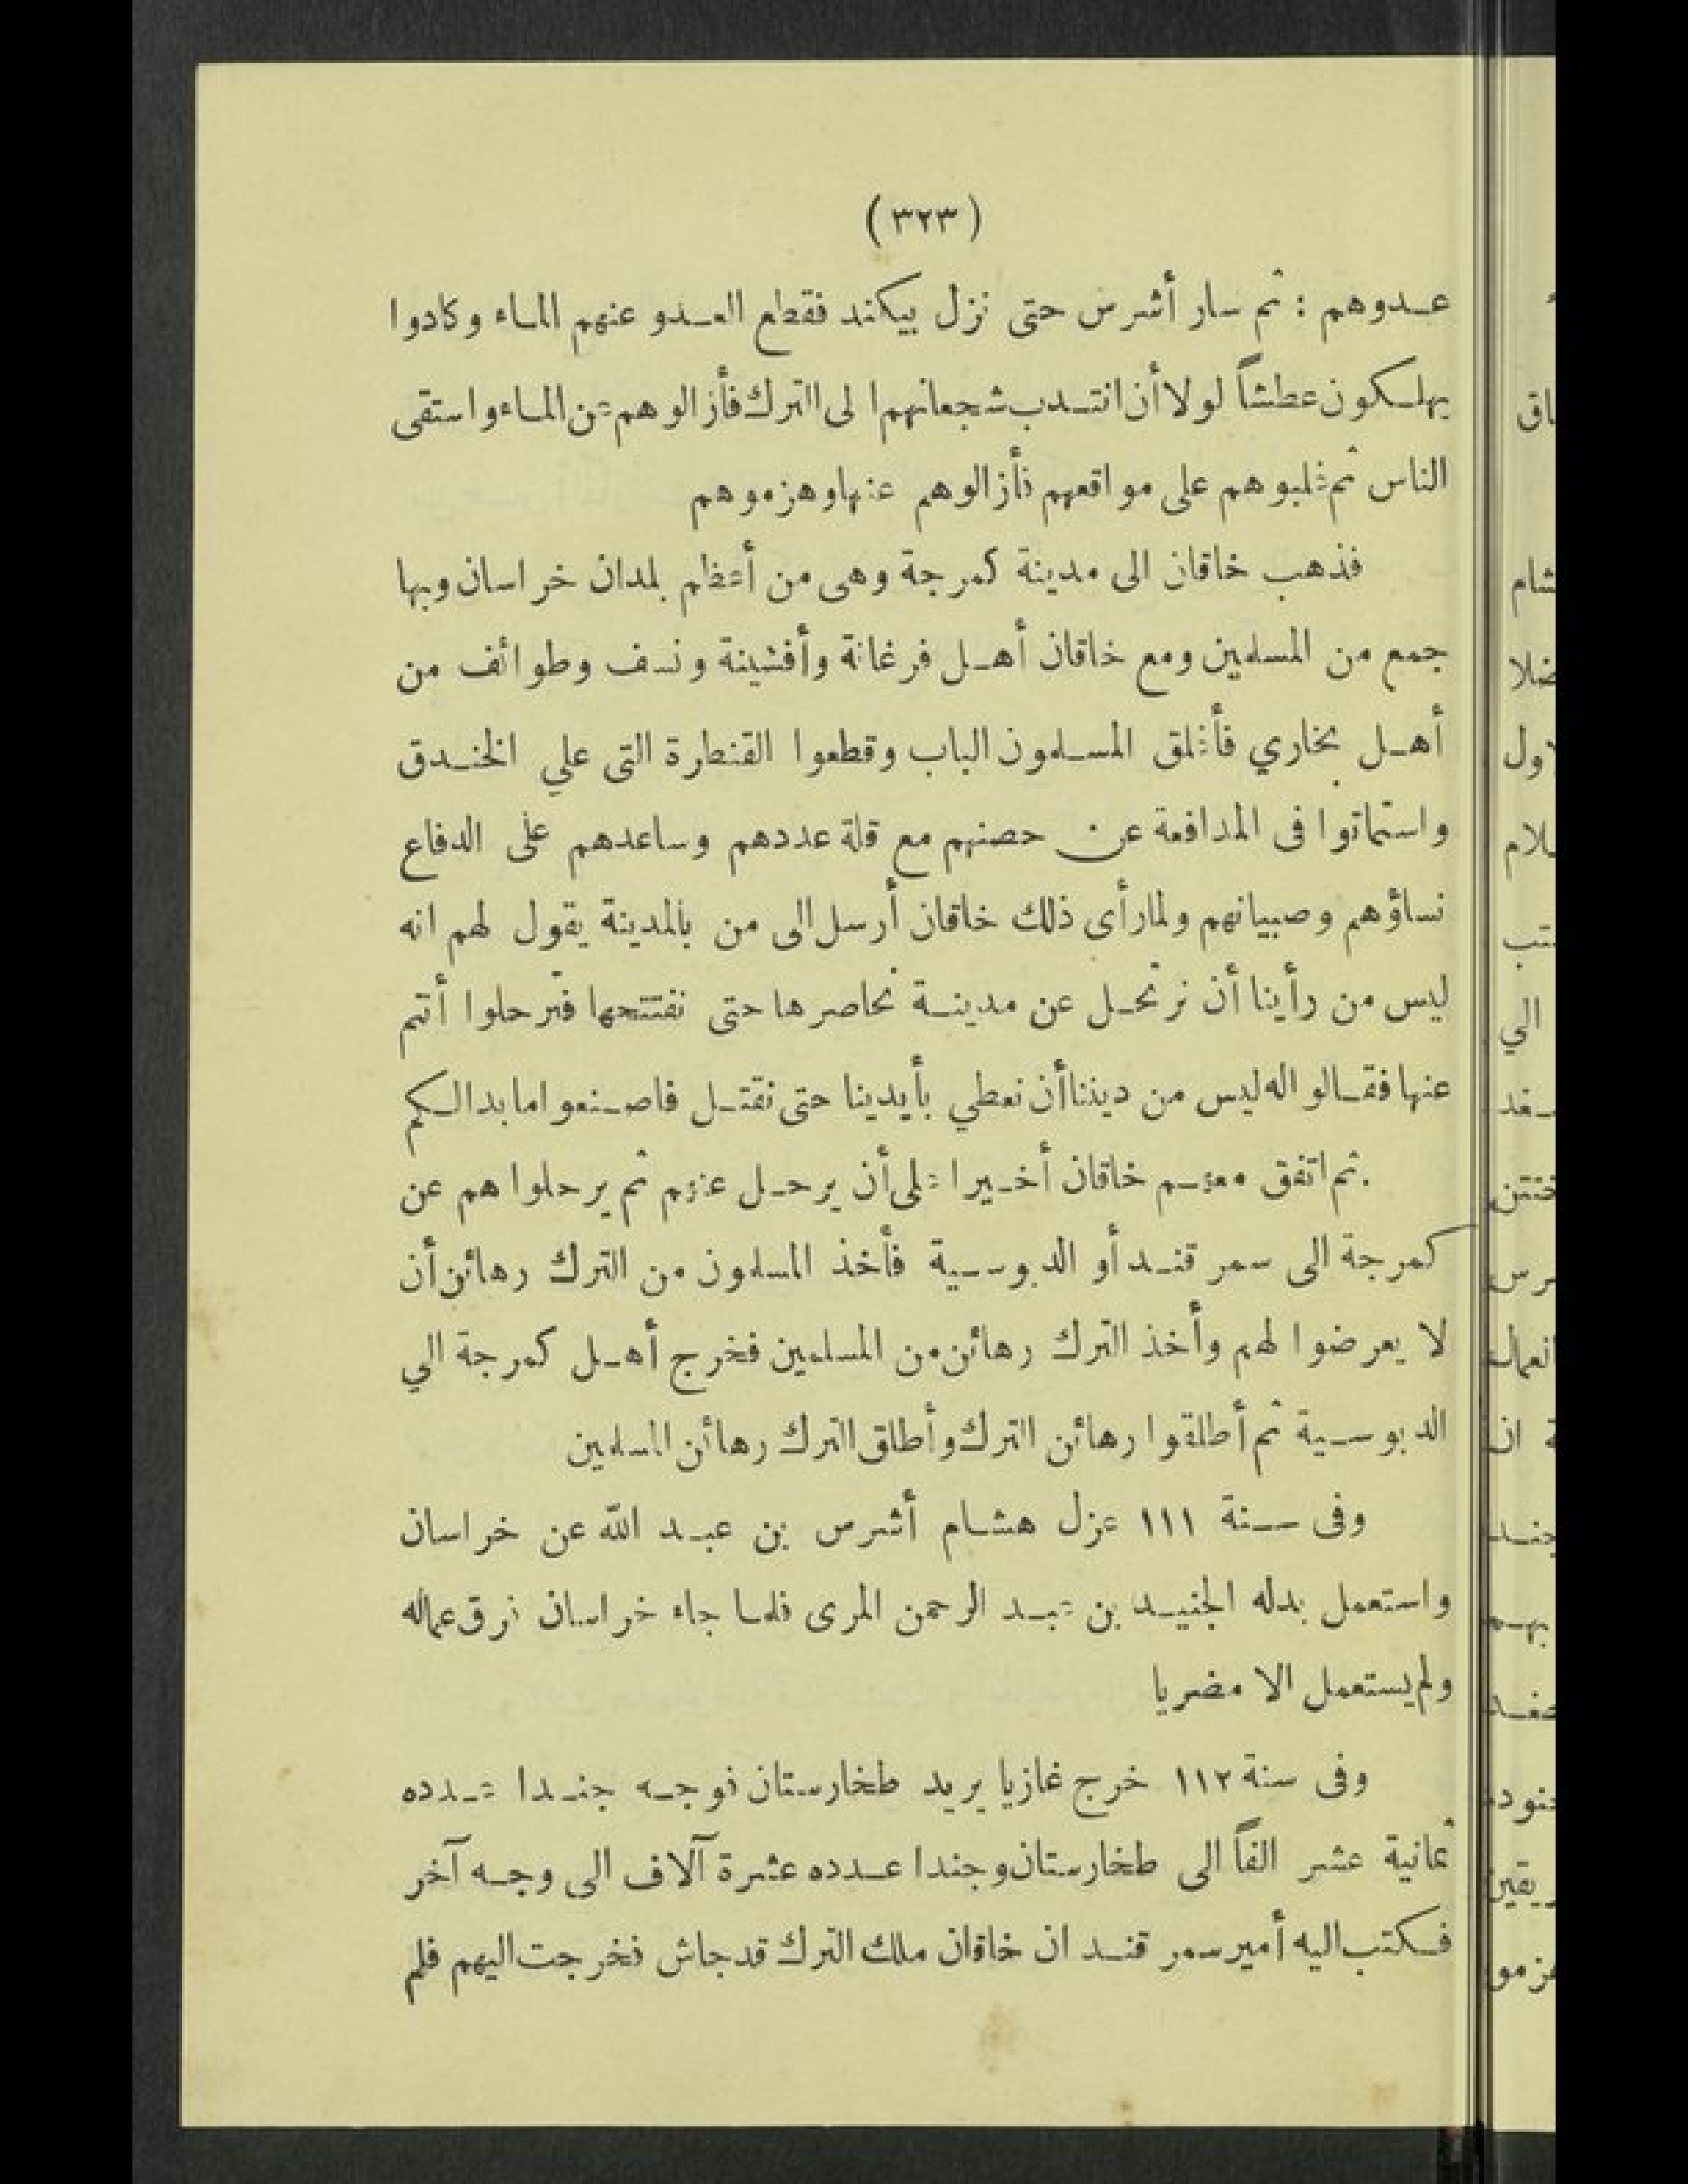 (٣٢٣)
عدوهم : ثم سار أشرس حتى نزل بيكند فقطع العدو عنهم الماء وكادوا
يهلكون عطشاً لولا أن انتدب شجعانهم الى الترك فأزالوهم عن الماء واستقى
الناس ثم غلبوهم على مواقعهم فأزالوهم عنها وهزموهم
فذهب خاقان الى مدينة كمرجة وهى من أعظم بلدان خراسان وبها
جمع من المسلمين ومع خاقان أهل فرغانة وأفشينة ونسف وطوائف من
أهل بخاري فأغلق المسلمون الباب وقطعوا القنطرة التى علي الخندق
واستماتوا فى المدافعة عن حصنهم مع قلة عددهم وساعدهم على الدفاع
نساؤهم وصبيانهم ولما رأى ذلك خاقان أرسل الى من بالمدينة يقول لهم انه
ليس من رأينا أن نرتحل عن مدينة نحاصرها حتى نفتتحها فترحلوا أنتم
عنها فقالوا له ليس من ديننا أن نعطي بأيدينا حتى نقتل فاصنعوا ما بدا لكم
.ثم اتفق معهم خاقان أخيرا على أن يرحل عنهم ثم يرحلوا هم عن
كمرجة الى سمرقند أو الدبوسية فأخذ المسلمون من الترك رهائن أن
لا يعرضوا لهم وأخذ الترك رهائن من المسلمين فخرج أهل كمرجة الي
الدبوسية ثم أطلقوا رهائن الترك وأطلق الترك رهائن المسلمين
وفى سنة ١١١ عزل هشام أشرس بن عبد الله عن خراسان
واستعمل بدله الجنيد بن عبد الرحمن المرى فلما جاء خراسان فرق عماله
ولم يستعمل الا مضريا
وفى سنة ١١٢ خرج غازيا يريد طخارستان فوجه جندا عدده
ثمانية عشر الفاً الى طخارستان وجندا عدده عشرة آلاف الى وجه آخر
فكتب اليه أمير سمرقند ان خاقان ملك الترك قد جاش فخرجت اليهم فلم